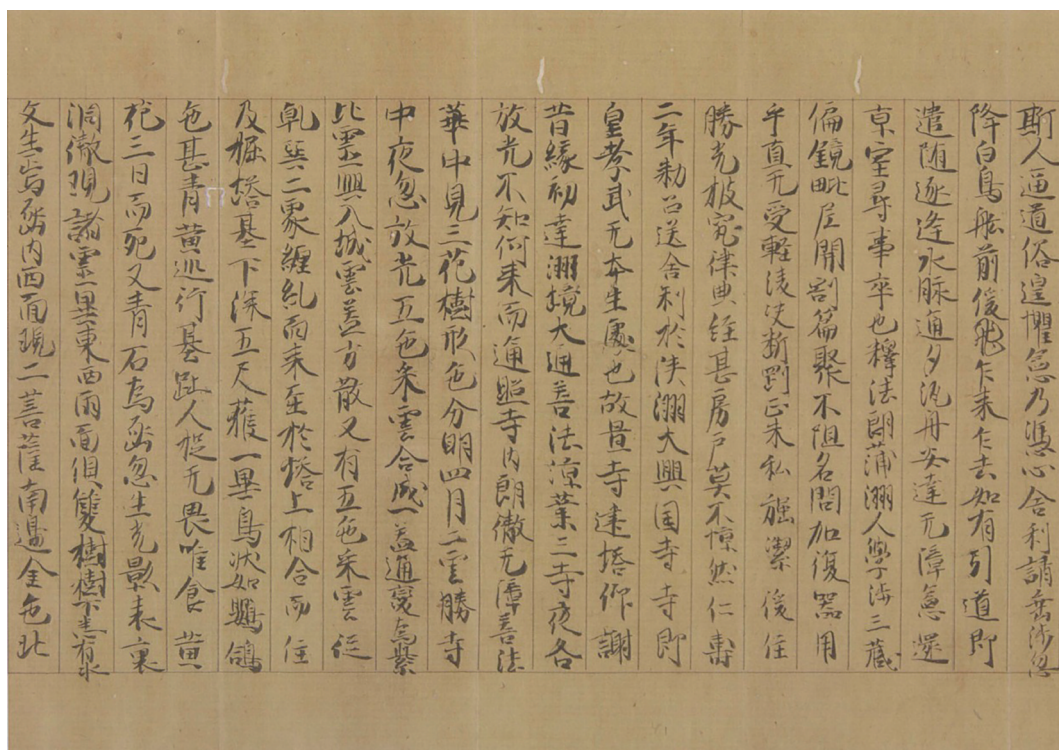 斯人逼道俗遑懼忽乃憑心舍利請垂沙忽
降白鳥船前後飛乍来乍去如有引道即
遣随逐逢水脉通夕汎舟安達无障急還
京室尋事卒也釋法朗蒲州人學涉三蔵
偏鏡毗尼開割篇聚不阻名問加復器用
平直无受軽湊决断罰正未私施潔後住
勝光披究律典銓甚房戸莫不懔然仁壽
二年勅召送舎利於陜州大興国寺寺即
皇考武元本生處也故置寺建塔仰謝
昔縁初達州境大通善法演業三寺夜各
放光不知何来而通照寺内朗徹无障善法
華中見三花樹形色分明四月二雲勝寺
中夜忽放光五色彩雲合成一盖通變為紫
比霊輿入城雲盖方散又有五色采雲従
乹巽二象纏糺而来至於塔上相合而住
及掘塔基下深五尺獲一異鳥状如鸜鴿
色甚青黄巡行基趾人捉无畏唯食黄
花三日而死又青石為函忽生光影表裏
洞徹現諸霊異東西兩面倶雙樹樹下悉有水
文生焉函内西面現二菩薩南邊金色北